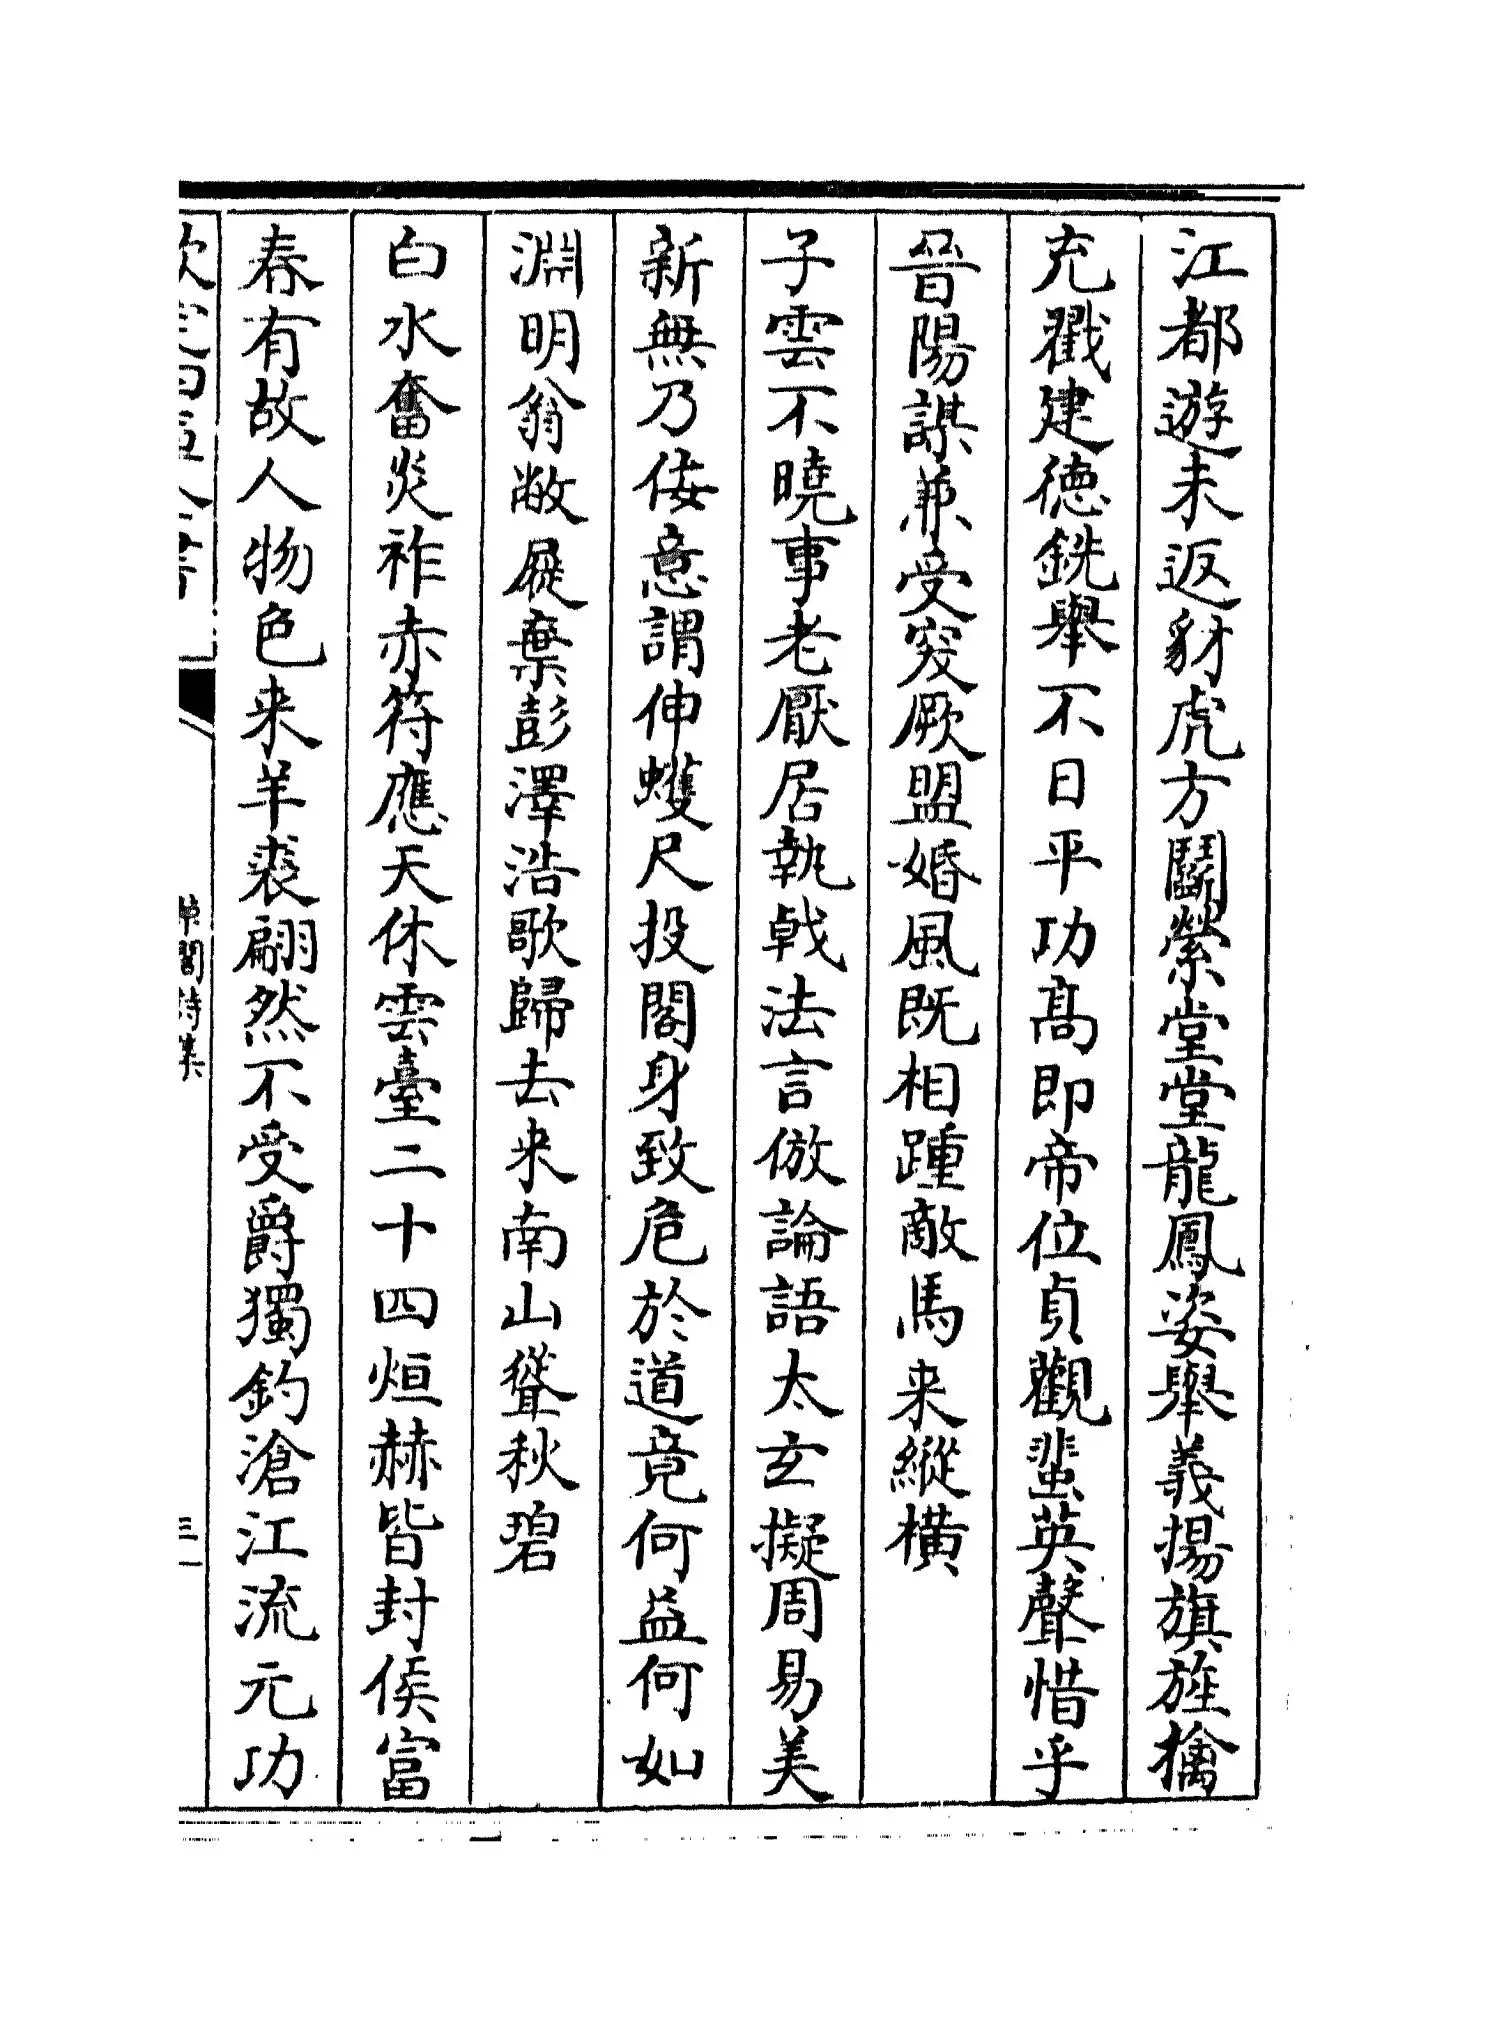 江都遊未返豺虎方鬬縈堂堂龍鳳姿舉義揚旗旌擒
充戳建德銑舉不日平功髙即帝位貞觀蜚英聲惜乎
晉陽謀兼受突厥盟婚風既相踵敵馬来縱横
子雲不曉事老厭居執戟法言倣論語太玄擬周易美
新無乃佞意謂伸蠖尺投閣身致危於道竟何益何如
淵明翁敝屣棄彭澤浩歌歸去来南山聳秋碧
白水奮炎祚赤符應天休雲臺二十四烜赫皆封侯富
春有故人物色来羊裘翩然不受爵獨釣滄江流元功
欽定四庫全書
閣詩集
三